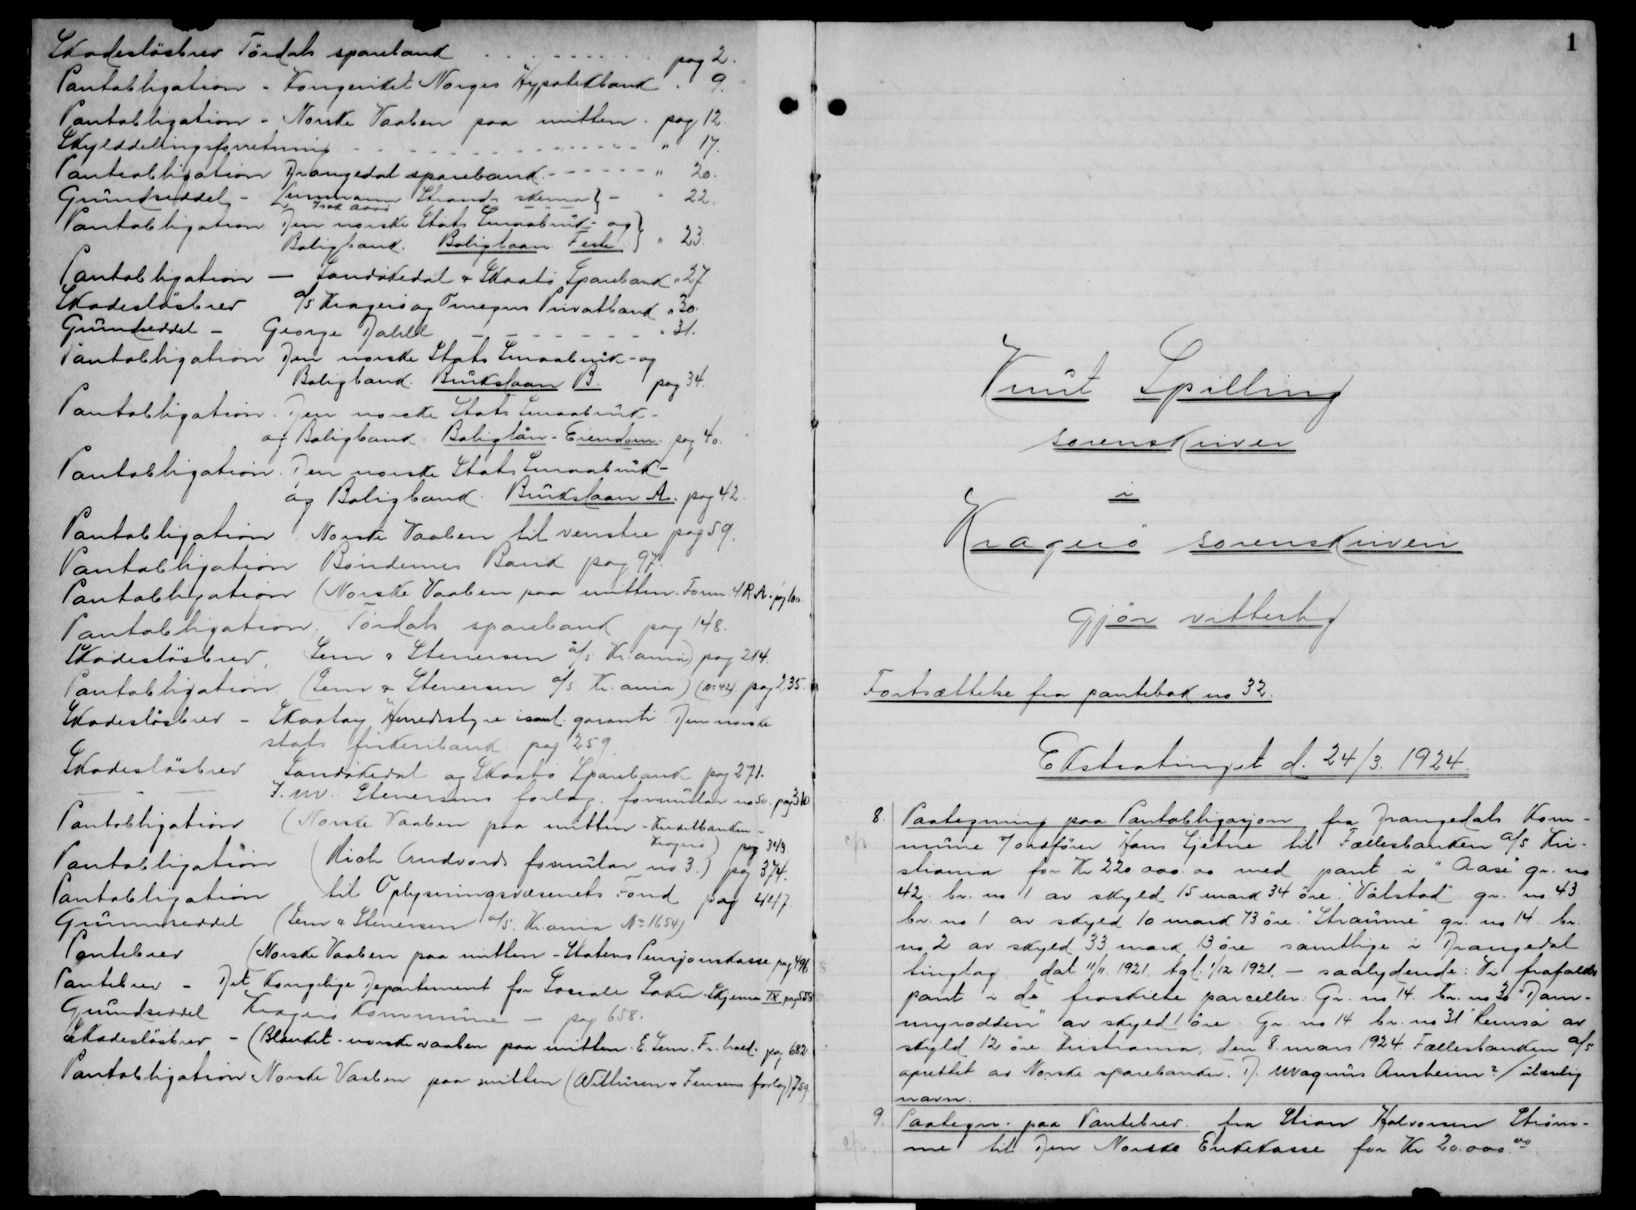 Skadesløsbrev Tördals sparebank . . . . . . . . . . pag 2.
Pantobligation - Kongeriket Norges Hypotekbank . " 9.
Pantobligation - Norske Vaaben paa mitten . pag 12.
Skylddelingsforretning - - - - - - - - - - " 17.
Pantobligation Drangedal sparebank - - - - - - " 20.
Grundseddel - Strands skema } - " 22.
Pantobligation Den norske Stats Smaabruk- og }
Boligbank. Boliglaan Feste } " 23.
Pantobligation — Sandøkedal & Skaatø Sparebank " 27
Skadesløsbrev a/s Kragerø og Omegns Privatbank " 30.
Grundseddel - George Dahll - - - - - - " 31.
Pantobligation Den norske Stats Smaabruk- og
Boligbank. Brukslaan B. pag 34.
Pantobligation. Den norske Stats Smaabruk-
og Boligbank. Boliglån - Eiendom. pag 40.
Pantobligation. Den norske Stats Smaabruk-
og Boligbank. Brukslaan A. pag 42.
Pantobligation. Norske Vaaben til venstre pag 59.
Pantobligation Bøndernes Bank pag 97.
Pantobligation (Norske Vaaben paa mitten. Form. 4 R.A. pag
Pantobligation. Tördals sparebank pag 148.
Skadesløsbrev, Sem & Stenersen a/s Kr.ania) pag 214.
Pantobligation (Sem & Stenersen a/s Kr.ania) (No 42) pag 235.
Skadesløsbrev - Skaatøy Herredstyre garanti. Den norske
stats fiskeribank. pag 259.
Skadesløsbrev Sandøkedal og Skaatø Sparebank pag 271.
— — J.M. Stenersens forlag. formular no 50. pag 310
Pantobligation (Norske Vaaben paa mitten - Kreditbanken -
Kragerø) pag 343.
Pantobligation (Rich Andvords formular no 3.) pag 374.
Pantobligation til Oplysningsvæsenets Fond pag 447.
Grunnseddel (Sem & Stenersen a/s. Kr.ania No 1654)
Pantebrev (Norske Vaaben paa mitten - Statens Pensjonskasse pag 496
Pantebrev - Det Kongelige Departement for Sociale Saker. Skjema IX pag 558
Grundseddel Kragerø Kommune — pag 658.
Skadesløsbrev - (Blankit - norske vaaben paa mitten. E. Sem. Fr.hald. pag 682
Pantobligation Norske Vaaben paa mitten (Withusen & Jensens forlag) 759
1
Knut Spilling
sorenskriver
i
Kragerø sorenskriveri
gjør vitterlig
Fortsættelse fra pantebok no 32.
Ekstratinget d. 24/3. 1924.
8. Paategning paa Pantobligasjon fra Drangedals Kom-
mune v/ordfører Hans Gjetne til Fællesbanken a/s Kri-
stiania for Kr 220.000.00 med pant i "Aase" gr. no
42. br. no 1 av skyld 15 mark 34 øre. "Vålstad" gr. no 43
br. no 1 av skyld 10 mark 73 øre. "Straume" gr. no 14. br.
no 2 av skyld 33 mark 13 øre samtlige i Drangedal
tinglag dat 11/11. 1921. tgl. 1/12 1921. — saalydende: Vi frafalder
pant i de fraskilte parceller: Gr. no 14. br. no 30 "Dam-
myrodden" av skyld 1 øre. Gr. no 14 br. no 31 "Remsa" av
skyld 12 øre. Kristiania, den 8. mars 1924. Fællesbanken a/s
oprettet av Norske sparebanker. D. Magnus Ansheim? / ulæselig
navn.
9. Paategn. paa Pantebrev. fra Stian Halvorsen Strøm-
me til Den Norske Enkekasse for Kr 20.000.00